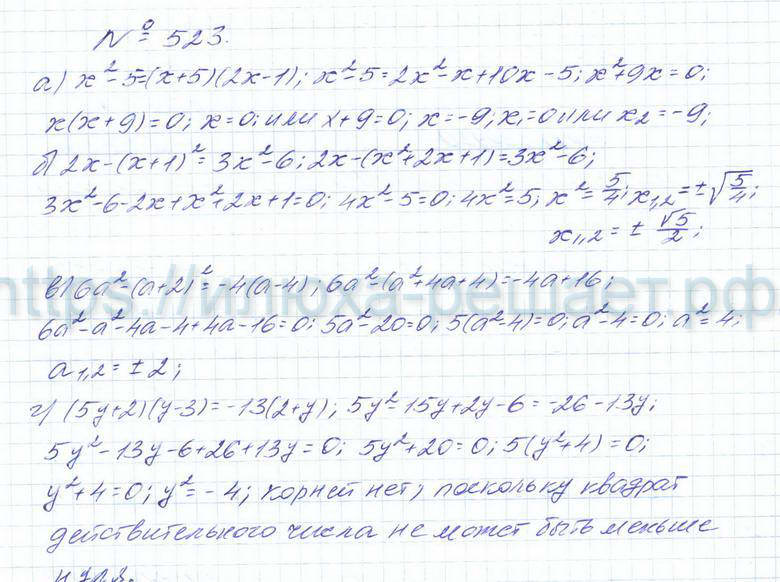 № 523.
а) x² - 5 = (x+5)(2x-1); x² - 5 = 2x² - x + 10x - 5; x² + 9x = 0;
x(x+9) = 0; x = 0; или x+9 = 0; x = -9; x₁ = 0 или x₂ = -9;
б) 2x - (x+1)² = 3x² - 6; 2x - (x² + 2x + 1) = 3x² - 6;
3x² - 6 - 2x + x² + 2x + 1 = 0; 4x² - 5 = 0; 4x² = 5; x² = 5/4; x₁,₂ = ±√(5/4);
x₁,₂ = ± √5/2;
в) 6a² - (a+2)² = -4(a-4); 6a² - (a² + 4a + 4) = -4a + 16;
https://илюха-решает.рф
6a² - a² - 4a - 4 + 4a - 16 = 0; 5a² - 20 = 0; 5(a² - 4) = 0; a² - 4 = 0; a² = 4;
a₁,₂ = ± 2;
г) (5y+2)(y-3) = -13(2+y); 5y² - 15y + 2y - 6 = -26 - 13y;
5y² - 13y - 6 + 26 + 13y = 0; 5y² + 20 = 0; 5(y² + 4) = 0;
y² + 4 = 0; y² = -4; корней нет, поскольку квадрат
действительного числа не может быть меньше
нуля.